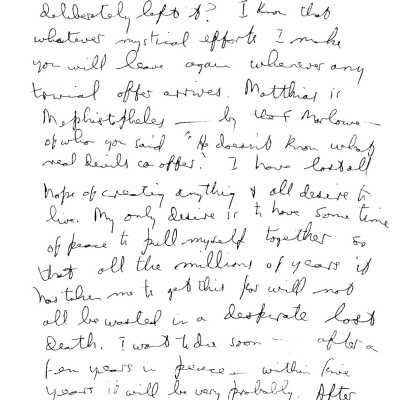 deliberately left it? I know that
whatever mystical efforts I make
you will leave again whenever any
trivial offer arrives. Matthias is
Mephistopheles — by Marlowe —
of who you said "He doesn't know what
real Devils can offer." I have lost all
hope of creating anything & all desire to
live. My only desire is to have some time
of peace to pull myself together so
that all the millions of years it
has taken me to get this far will not
all be wasted in a desperate lost
Death. I want to die soon — after a
few years in peace — within five
years it will be very probably. After